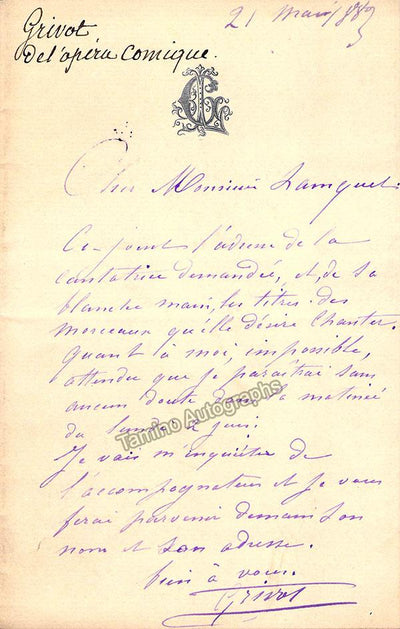 Grivot
de l'opéra Comique.
21 Mai
G
Cher Monsieur
Ci-joint l'adresse de la
cantatrice demandée, et, de sa
blanche main, les titres des
morceaux qu'elle désire Chanter.
Quant à moi, impossible,
attendu que je paraîtrai sans
aucun doute dans la matinée
du lundi
Tamino Autographs
Je vais m'enquérir de
l'accompagnateur et je vous
ferai parvenir demain son
nom et son adresse.
bien à vous.
Grivot